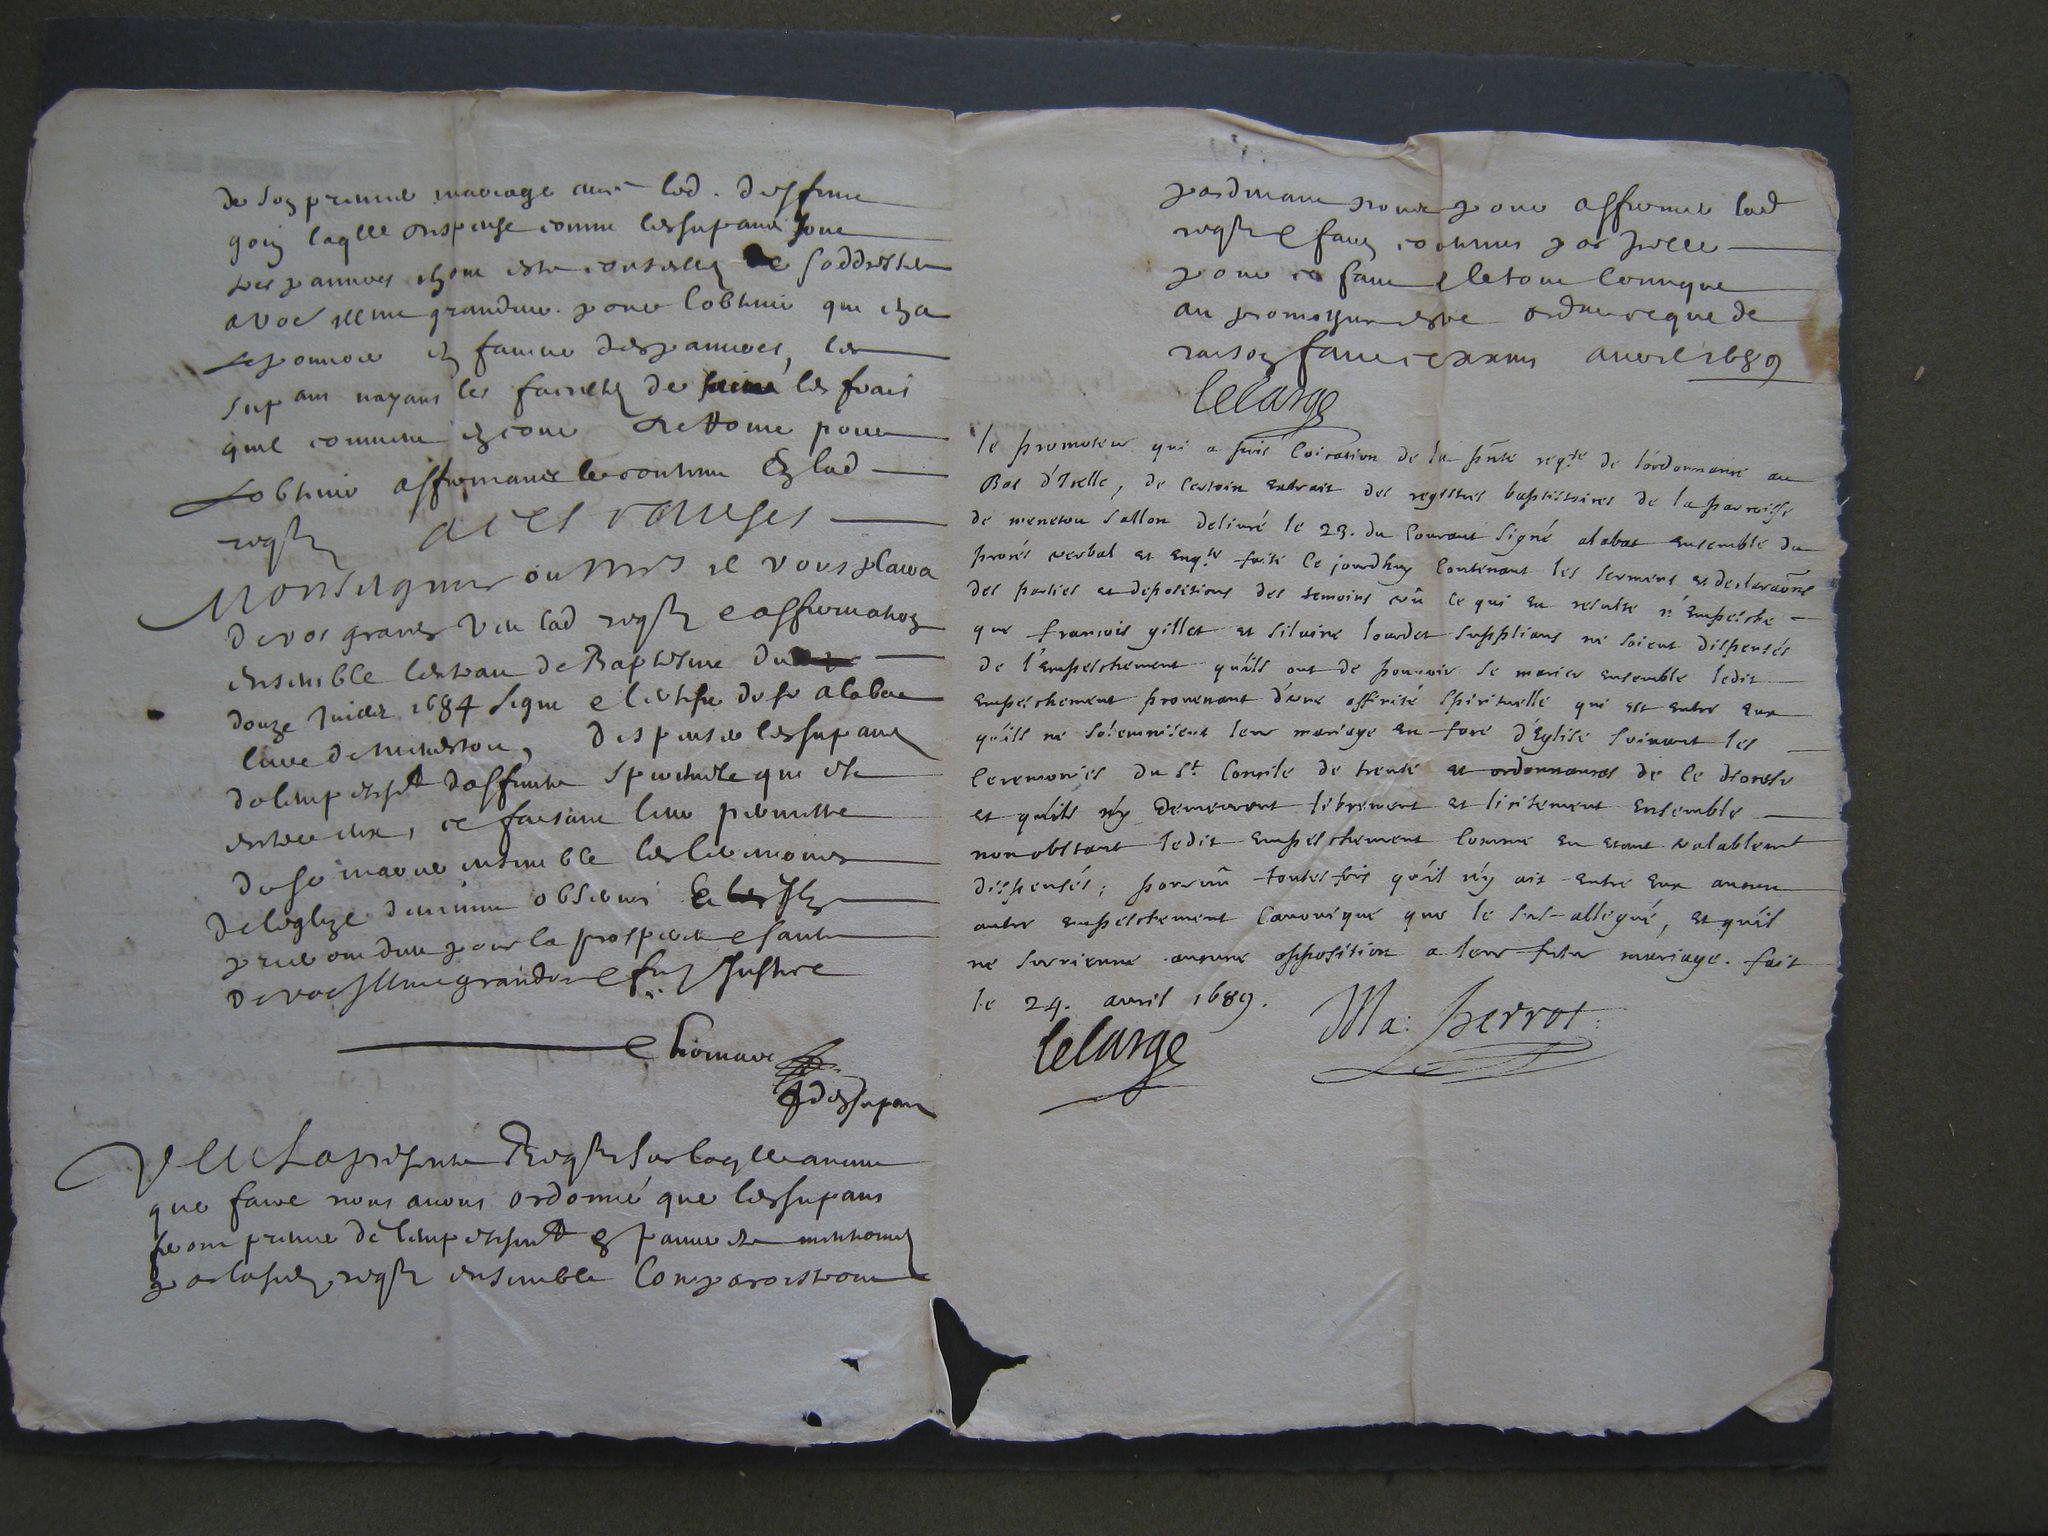 de son premier mariage avec led. deffunt
goin laqlle dispense comme les supans sont
pauvres ilz ont esté conseillez de saddresser
a vostre illme grandeur pour lobtenir qui en a
le pouvoir en faveur des pauvres, les
supans nayans les facultez de les frais
quil convient en cour de Rome pour
lobtenir affirmans le contenu en lad
reqte a ces causes
Monseigneur ou Mrs il vous plaira
de vos graces veu lad reqte et affirmation
ensemble lextrait de Baptesme du
douze 1684 signé et certifié de sr alabat
curé de menestou, dispenser les supans
de lempeschet daffinité spirituelle qui est
entre eux, ce faisant leur permettre
de se marier ensemble les ceremonies
de leglize observées et les
prieront dieu pour la prosperité et santé
de vostre Illme grandeur et fer Justice
Veu La presente Reqte sur laqlle avant
que faire nous avons ordonné que les supans
feront preuve de lempeschet et pauvreté mentionnez
par lad reqte ensemble Comparoistront
pardevant nous pour affirmer lad
reqte et faits contenus par icelle
pour ce fait et le tout communiqué
au promoteur estre ordonné ce que de
raison fait ce avril 1689
lelarge
le promoteur qui a pris coication de la pnte reqte de l'ordonnance au
Bas d'Icelle, de certain extrait des registres baptistaires de la parroisse
de menetou sallon delivré le 23. du courant signé alabat ensemble du
procés verbal et enqte faite ce jourdhuy contenant les serment et declaraons
des parties et depositions des temoins vû ce qui en resulte n'empesche
que francois gillet et silvine lourdet supplians ne soient dispensés
de l'empeschement qu'ils ont de pouvoir se marier ensemble ledit
empeschement provenant d'une affinité spirituelle qui est entre eux
qu'ils ne solemnisent leur mariage en face d'Eglise suivant les
ceremonies du st. Concile de trente et ordonnances de ce diocese
et qu'ils n'y demeurent librement et licitement ensemble
nonobstant ledit empeschement comme en etant valablemt
dispensés; pourvû toutes fois qu'il n'y ait entre eux aucun
autre empeschement canonique que le sus-allegué, et qu'il
ne survienne aucune opposition a leur futur mariage. fait
le 24. avril 1689.
lelarge Ma: perrot